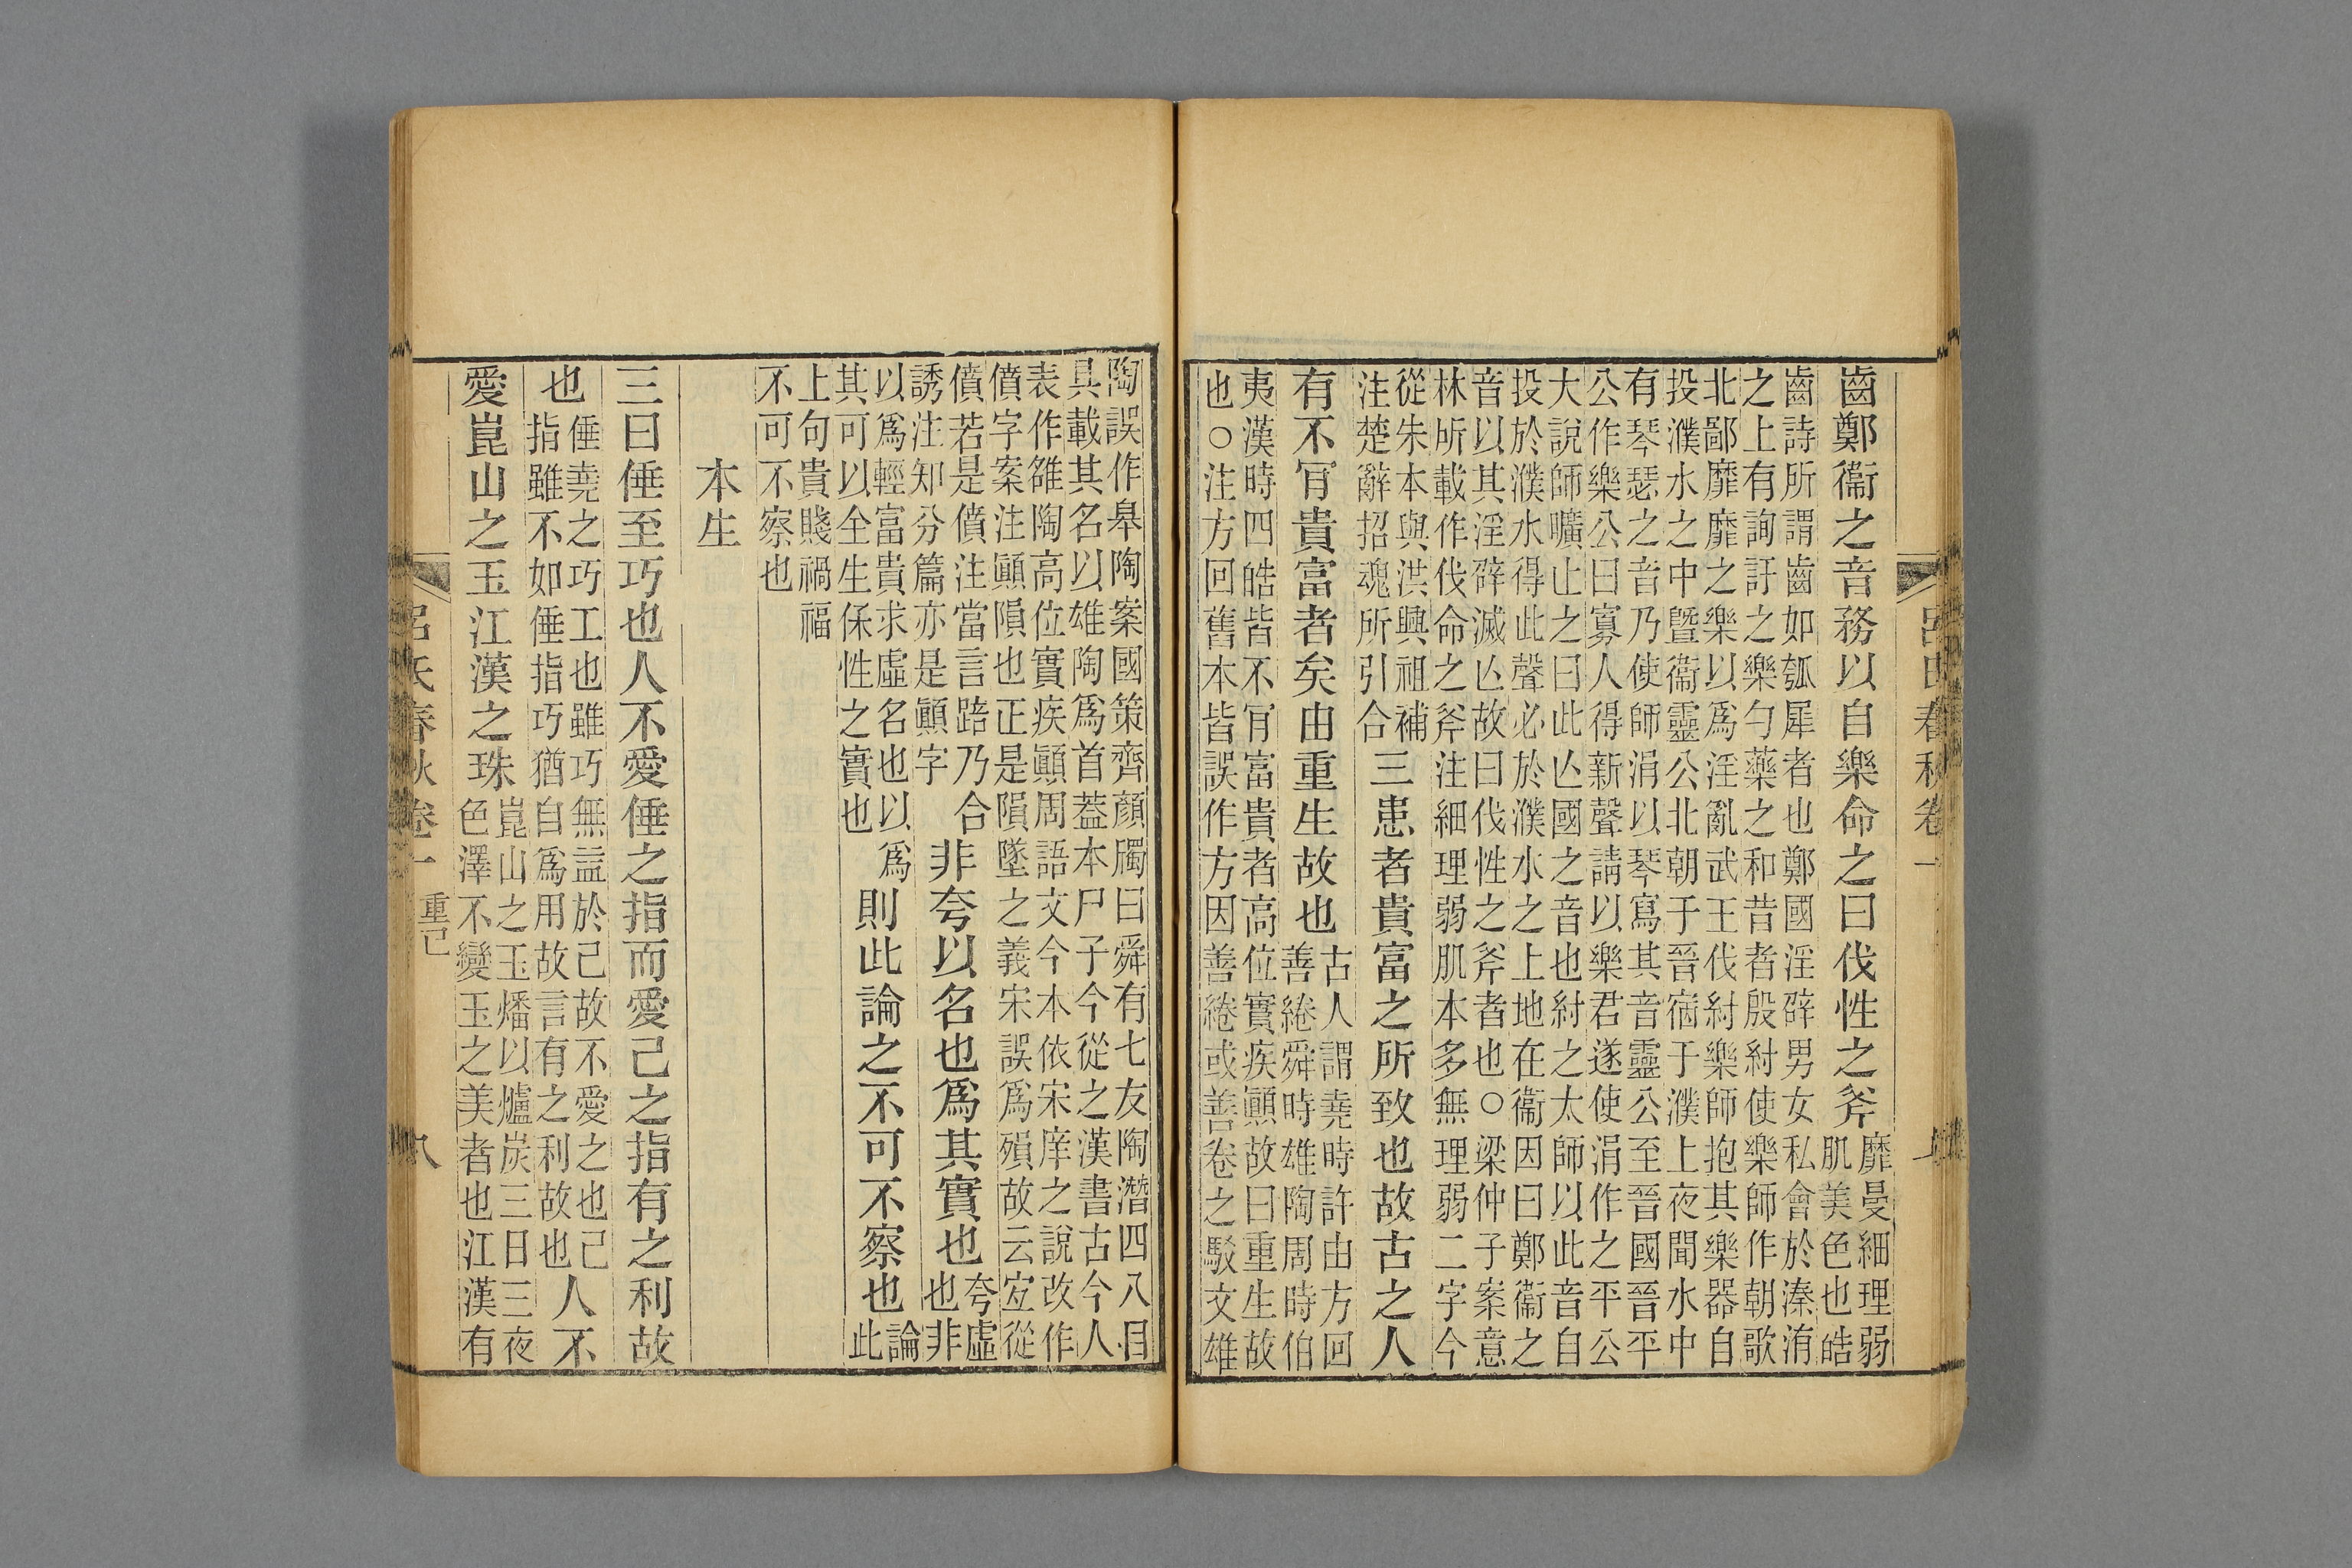 齒鄭衞之音務以自樂命之曰伐性之斧
靡曼細理弱
肌美色也皓
齒詩所謂齒如瓠犀者也鄭國淫辟男女私會於溱洧
之上有詢訏之樂勺藥之和昔者殷紂使樂師作朝歌
北鄙靡靡之樂以爲淫亂武王伐紂樂師抱其樂器自
投濮水之中曁衞靈公北朝于晉宿于濮上夜聞水中
有琴瑟之音乃使師涓以琴寫其音靈公至晉國晉平
公作樂公曰寡人得新聲請以樂君遂使涓作之平公
大說師曠止之曰此亾國之音也紂之太師以此音自
投於濮水得此聲必於濮水之上地在衞因曰鄭衞之
音以其淫辟滅亾故曰伐性之斧者也○梁仲子案意
林所載作伐命之斧注細理弱肌本多無理弱二字今
從朱本與洪興祖補
注楚辭招魂所引合
三患者貴富之所致也故古之人
有不肎貴富者矣由重生故也
古人謂堯時許由方回
善綣舜時雄陶周時伯
夷漢時四皓皆不肎富貴者高位實疾顚故曰重生故
也○注方回舊本皆誤作方因善綣或善卷之駁文雄
陶誤作皋陶案國策齊顏斶曰舜有七友陶潛四八目
具載其名以雄陶爲首葢本尸子今從之漢書古今人
表作雒陶高位實疾顚周語文今本依宋庠之說改作
僨字案注顚隕也正是隕墜之義宋誤爲殞故云宐從
僨若是僨注當言踣乃合
誘注知分篇亦是顚字
非夸以名也爲其實也
夸虛
也非
以爲輕富貴求虛名也以爲
其可以全生保性之實也
則此論之不可不察也
論
此
上句貴賤禍福
不可不察也
本生
三曰倕至巧也人不愛倕之指而愛己之指有之利故
也
倕堯之巧工也雖巧無益於己故不愛之也己
指雖不如倕指巧猶自爲用故言有之利故也
人不
愛崑山之玉江漢之珠
崑山之玉燔以爐炭三日三夜
色澤不變玉之美者也江漢有
呂氏春秋卷一 重己 八